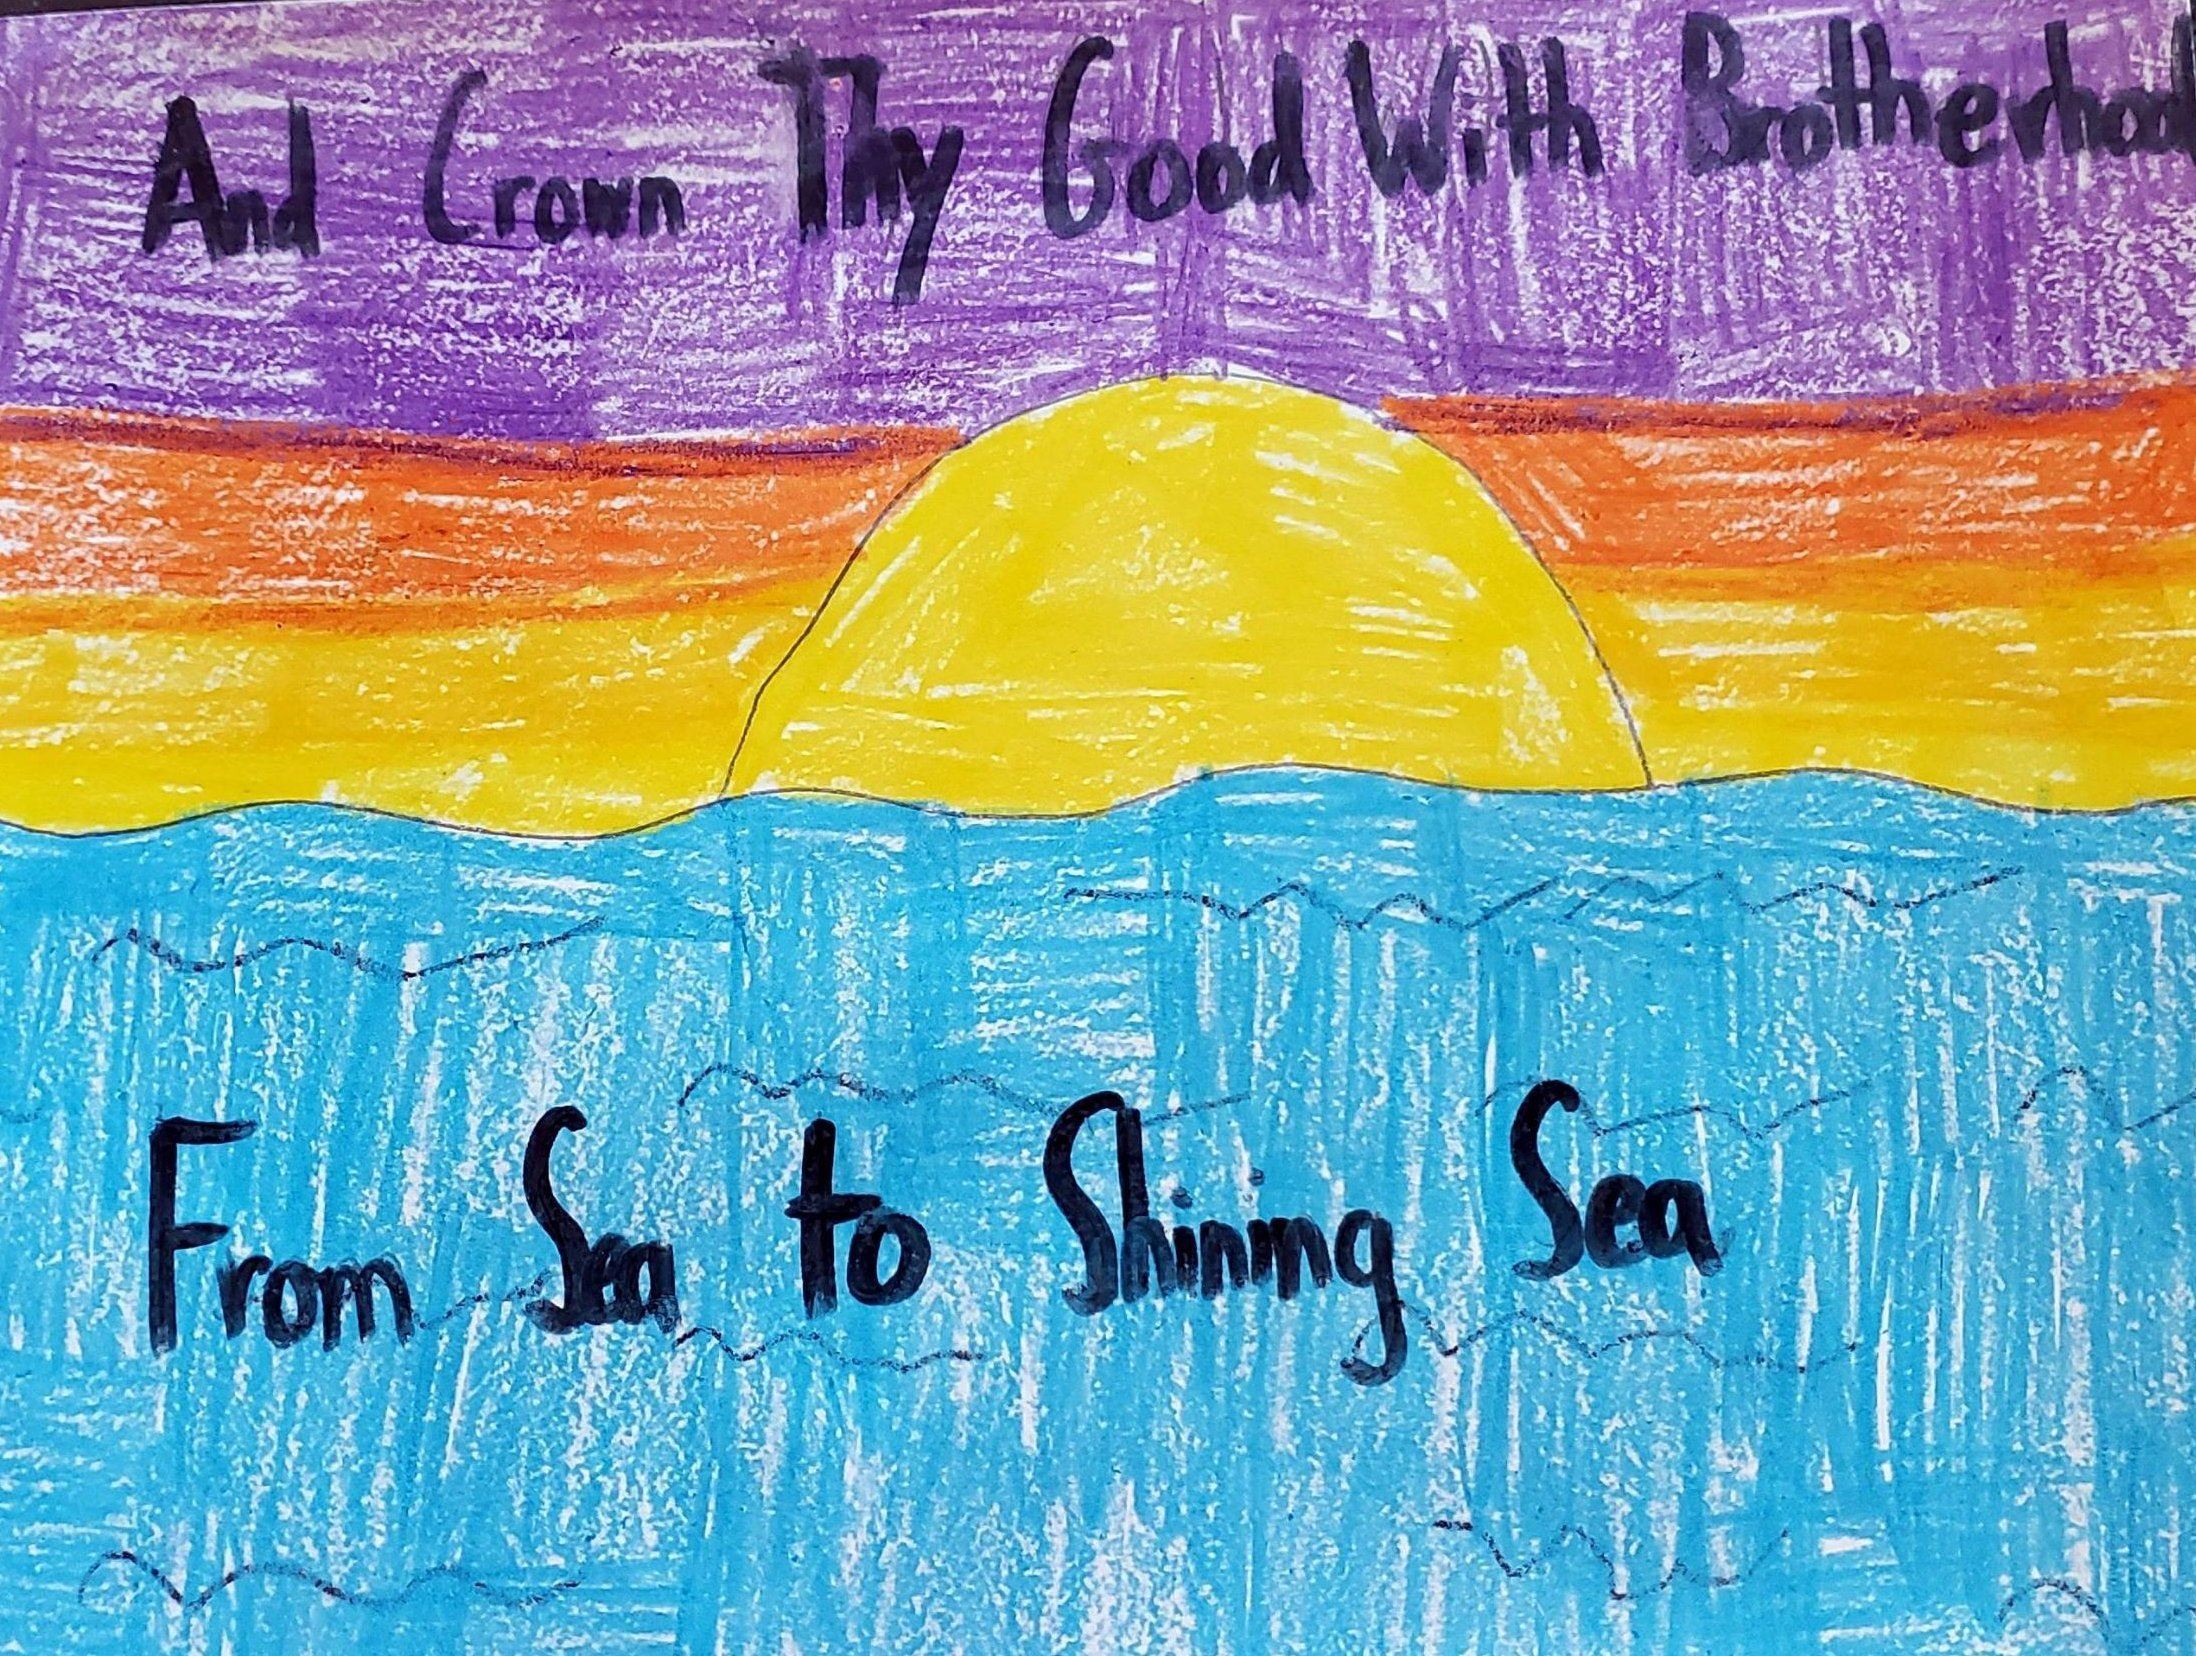 And Crown Thy Good With Brotherhood
From Sea to Shining Sea